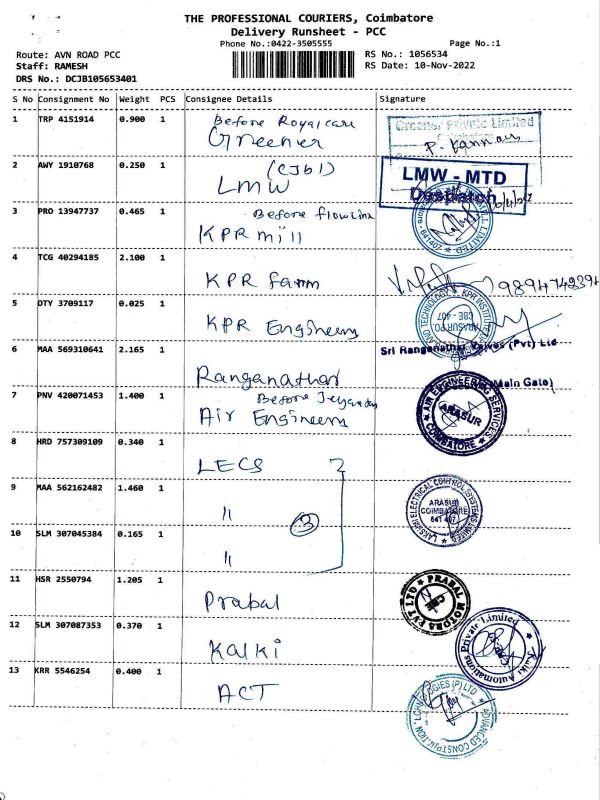 THE PROFESSIONAL COURIERS, Coimbatore
Delivery Runsheet - PCC
Phone No.:0422-3505555
Page No.:1
Route: AVN ROAD PCC
RS No.: 1056534
Staff: RAMESH
RS Date: 10-Nov-2022
DRS No.: DCJB105653401
S No Consignment No Weight PCS Consignee Details Signature
1 TRP 4151914 0.900 1 Before Royalcare
Greener
Greener Private Limited
P. Kannan
2 AWY 1910768 0.250 1 (CJb1)
LMW
LMW - MTD
Despatch
3 PRO 13947737 0.465 1 Before flowlink
KPR mill
MILL LIMITED
641407
4 TCG 40294185 2.100 1
KPR farm
5 OTY 3709117 0.025 1
KPR Engineers
ARASUR PO
CBE - 407
6 MAA 569310641 2.165 1
Ranganathar
Sri Ranganathar Valves (Pvt) Ltd
(Main Gate)
7 PNV 420071453 1.400 1 Before
Air Engineers
AIR ENGINEERING SERVICES
ARASUR
COIMBATORE
8 HRD 757309109 0.340 1
LECS
9 MAA 562162482 1.460 1
"
3
LAKSHMI ELECTRICAL CONTROL SYSTEMS LIMITED
ARASUR
COIMBATORE
641 407
10 SLM 307045384 0.165 1
"
11 HSR 2550794 1.205 1
Prabal
PRABAL MOTORS PVT LTD
CBE
12 SLM 307087353 0.370 1
Kalki
Kalki Automations Private Limited
13 KRR 5546254 0.400 1
ACT
ADVANCED CONSTRUCTION TECHNOLOGIES (P) LTD